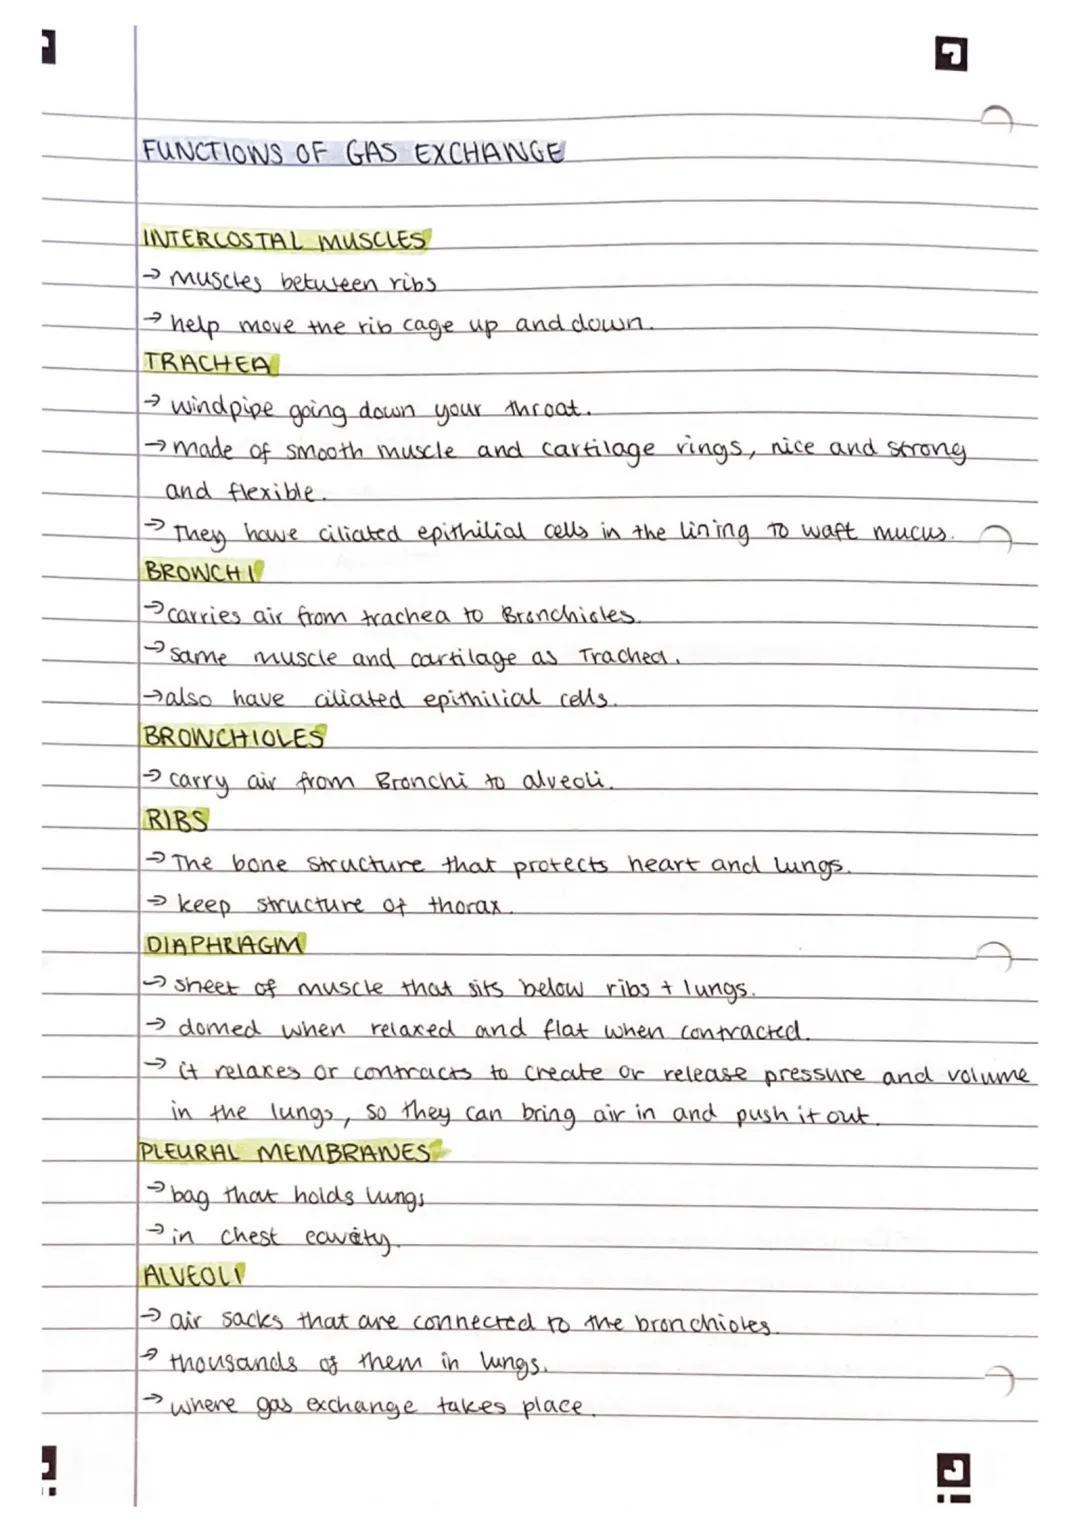 FUNCTIONS OF GAS EXCHANGE
INTERCOSTAL MUSCLES
→ muscles between ribs
→ help move the rib cage up and down.
TRACHEA
→ windpipe going down your throat.
→ made of smooth muscle and cartilage rings, nice and strong
and flexible.
→ They have ciliated epithilial cells in the lining to waft mucus.
BRONCHI
→ carries air from trachea to Bronchioles.
→ same muscle and cartilage as Trachea.
→ also have ciliated epithilial cells.
BRONCHIOLES
→ carry air from Bronchi to alveoli.
RIBS
→ The bone structure that protects heart and lungs.
→ keep structure of thorax.
DIAPHRAGM
→ sheet of muscle that sits below ribs + lungs.
→ domed when relaxed and flat when contracted.
→ it relaxes or contracts to create or release pressure and volume
in the lungs, so they can bring air in and push it out.
PLEURAL MEMBRANES
→ bag that holds lungs
→ in chest cavity.
ALVEOLI
→ air sacks that are connected to the bronchioles.
→ thousands of them in lungs.
→ where gas exchange takes place.